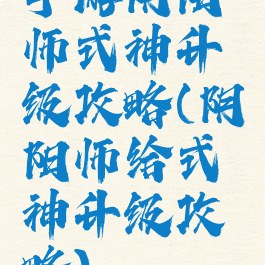 手游阴阳
师式神升
级攻略(阴
阳师给式
神升级攻
略)